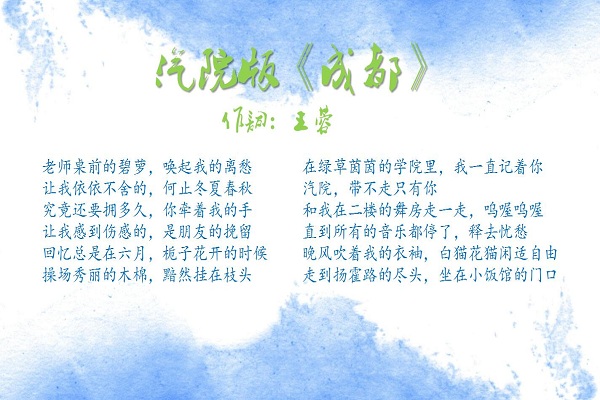 汽院版《成都》
作词：王蓉
老师桌前的碧萝，唤起我的离愁
让我依依不舍的，何止冬夏春秋
究竟还要拥多久，你牵着我的手
让我感到伤感的，是朋友的挽留
回忆总是在六月，栀子花开的时候
操场秀丽的木棉，黯然挂在枝头
在绿草茵茵的学院里，我一直记着你
汽院，带不走只有你
和我在二楼的舞房走一走，呜喔呜喔
直到所有的音乐都停了，释去忧愁
晚风吹着我的衣袖，白猫花猫闲适自由
走到扬霍路的尽头，坐在小饭馆的门口